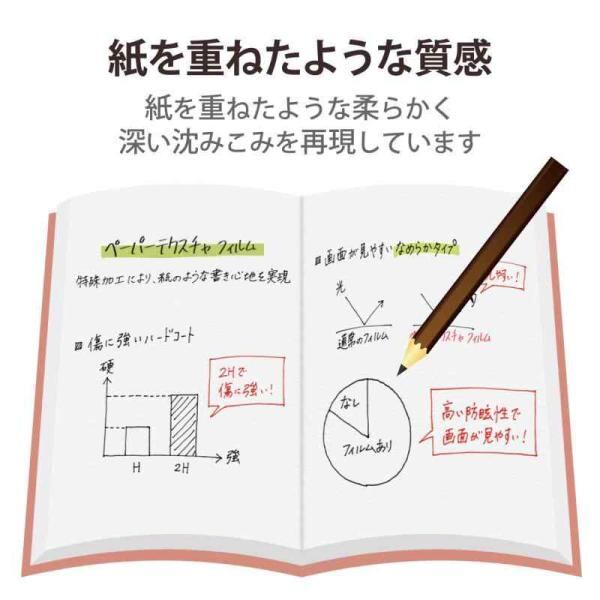 紙を重ねたような質感
紙を重ねたような柔らかく
深い沈みこみを再現しています
ペーパーテクスチャフィルム
特殊加工により、紙のような書き心地を実現
傷に強いハードコート
硬
2Hで
傷に強い!
H
2H
強
画面が見やすいなめらかタイプ
光
やすい!
通常のフィルム
テクスチャフィルム
なし
フィルムあり
高い防眩性で
画面が見やすい!